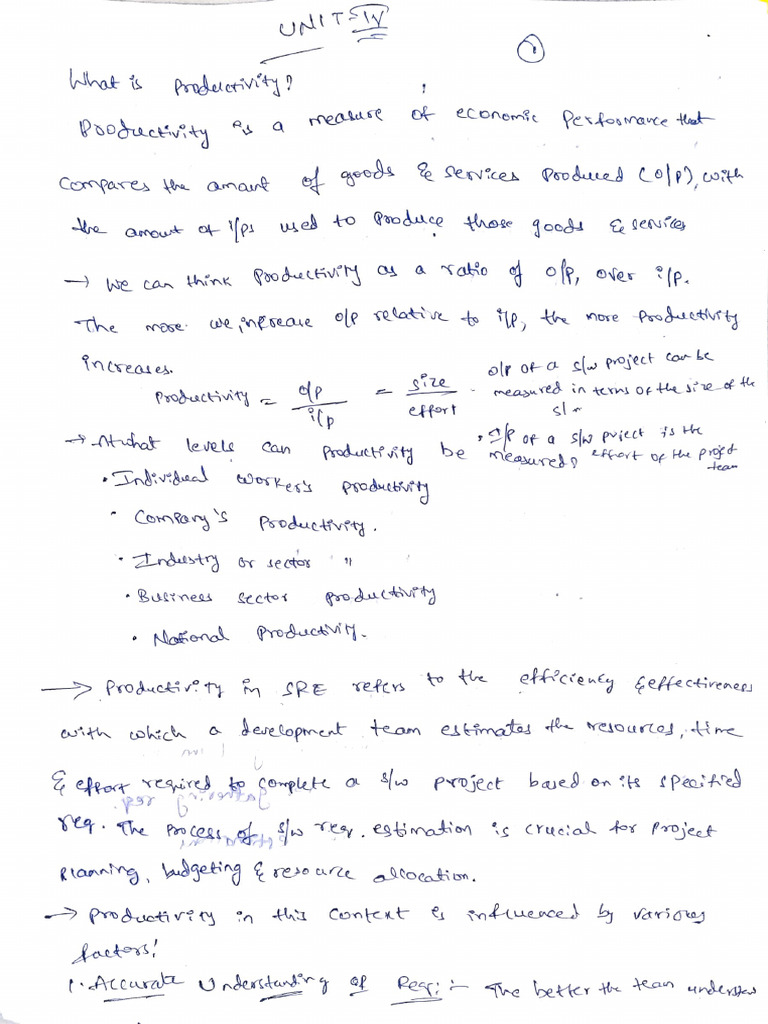 UNIT-IV
1
What is Productivity?
Productivity is a measure of economic Performance that
compares the amount of goods & services Produced (O/P), with
the amount of i/ps used to produce those goods & services
→ We can think Productivity as a ratio of O/P, over i/p.
The more we increase O/P relative to i/p, the more Productivity
increases.
Productivity = O/P / i/p = size / effort
O/P of a s/w project can be
measured in terms of the size of the
s/w
• I/P of a s/w project is the
effort of the project
team
→ At what levels can productivity be measured?
• Individual worker's productivity
• Company's productivity.
• Industry or sector "
• Business sector productivity
• National Productivity.
→ Productivity in SRE refers to the efficiency & effectiveness
with which a development team estimates the resources, time
& effort required to complete a s/w project based on its specified
req. The process of s/w req. estimation is crucial for project
planning, budgeting & resource allocation.
→ Productivity in this context is influenced by various
factors!
1. Accurate Understanding of Req:- The better the team understan